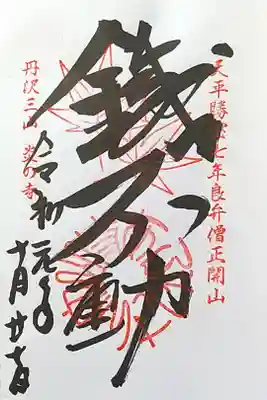 天平勝宝七年良弁僧正開山
鐵不動
丹沢三山
令和元年
十月廿七日